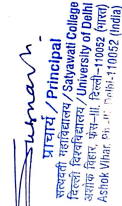 प्राचार्य / Principal
सत्यवती महाविद्यालय / Satyawati College
दिल्ली विश्वविद्यालय / University of Delhi
अशोक विहार, फेस-III, दिल्ली-110052 (भारत)
Ashok Vihar, Ph-III, Delhi-110052 (India)